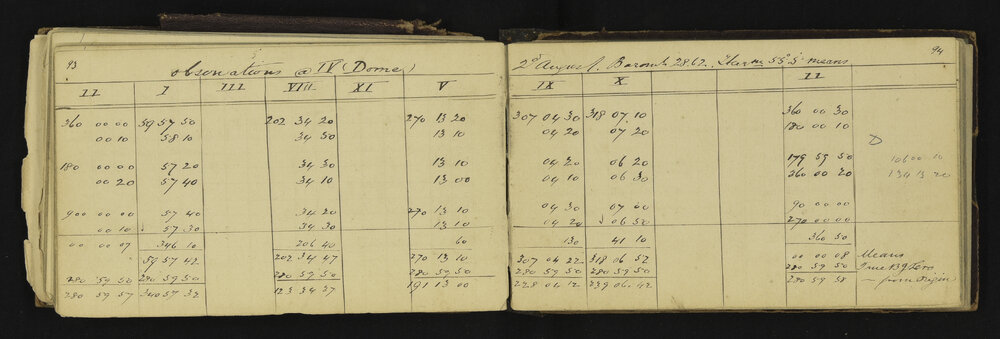 93
observations @ IV (Dome)
II I III VIII XI V
360 00 00 59 57 50 202 34 20 270 13 20
00 10 58 10 34 50 13 10
180 00 00 57 20 34 30 13 10
00 20 57 40 34 10 13 00
900 00 00 57 40 34 20 270 13 10
00 10 57 30 34 30 13 10
00 00 07 346 10 206 40 60
59 57 42 202 34 47 270 13 10
280 59 50 280 59 50 280 59 50 280 59 50
280 59 57 340 57 32 123 34 37 191 13 00
94
2d August. Barom 28.62. Therm 55°.5 means
IX X II
307 04 30 318 07 10 360 00 30
04 20 07 20 180 00 10
D
04 20 06 20 179 59 50 106 00 10
04 10 06 30 360 00 20 134 13 20
04 30 07 00 90 00 00
04 20 06 50 270 00 00
130 41 10 360 50
307 04 22 318 06 52 00 00 08 Means
280 59 50 280 59 50 280 59 50 True Bg Zero
228 04 12 239 06 42 280 59 58 from Origin